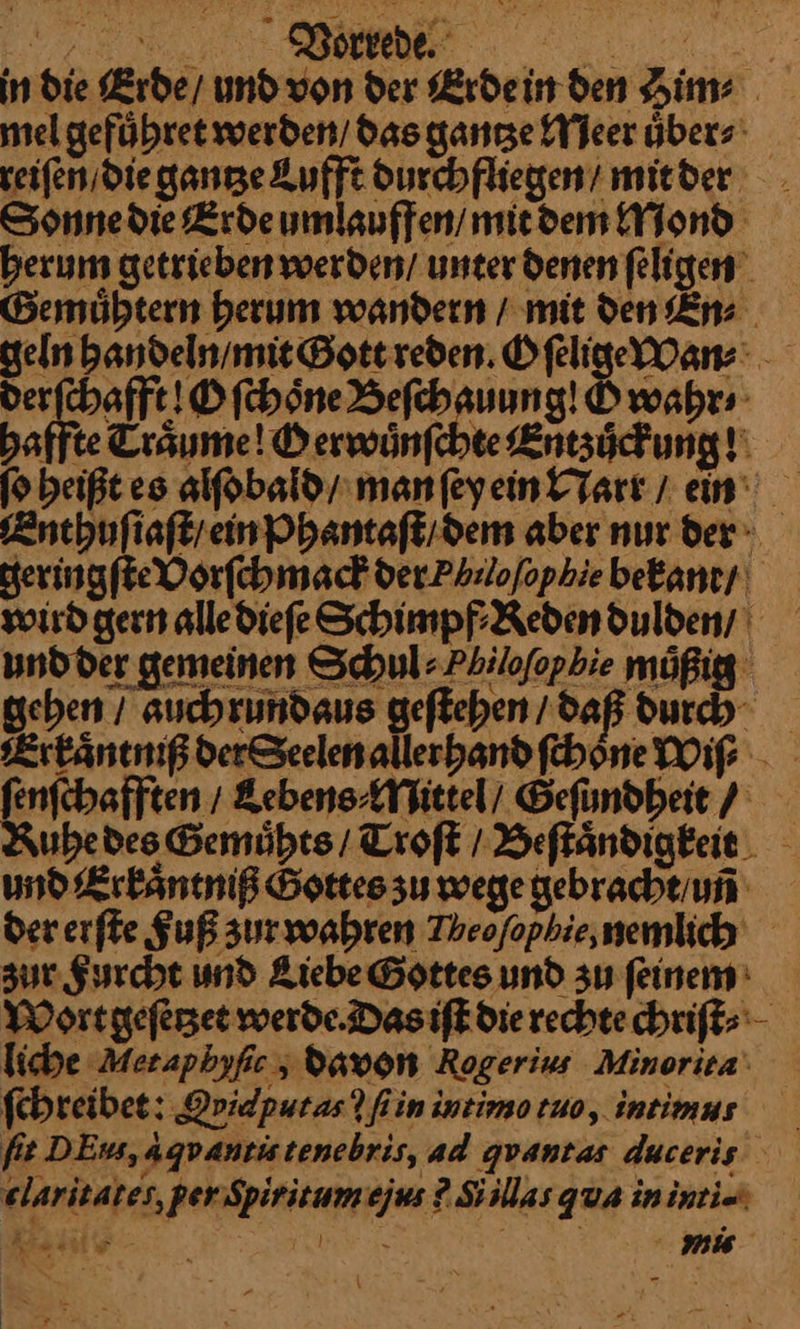 Vorrede.
in die Erde/ und von der Erde in den Him⸗
mel gefuͤhret werden/ das gantze Meer uͤber⸗
reiſen/ die gantze Lufft durchfliegen/ mit der
Sonne die Erde umlauffen/ mit dem Mond
herum getrieben werden/ unter denen ſeligen
Gemuͤhtern herum wandern / mit den En⸗
geln handeln/ mit Gott reden. O ſelige Wan⸗
derſchafft! O ſchoͤne Beſchauung! O wahr⸗
haffte Traͤume! O erwuͤnſchte Entzuͤckung!
ſo heißt es alſobald/ man ſey ein Narr / ein
Enthuſiaſt/ ein Phantaſt/ dem aber nur der
geringſte Vorſchmack der Philoſophie bekant/
wird gern alle dieſe Schimpf⸗Reden dulden/
und der gemeinen Schul⸗Philoſophie muͤßig
gehen / auch rundaus geſtehen / daß durch
Erkaͤntniß der Seelen allerhand ſchoͤne Wiſ⸗
ſenſchafften / Lebens⸗Mittel/ Geſundheit /
Ruhe des Gemuͤhts / Troſt / Beſtaͤndigkeit
und Erkaͤntniß Gottes zu wege gebracht/ uñ
der erſte Fuß zur wahren Theoſophie, nemlich
zur Furcht und Liebe Gottes und zu ſeinem
Wort geſetzet werde. Das iſt die rechte chriſt⸗
liche Metaphyſic, davon Rogerius Minorita
ſchreibet: Qvid putas? ſi in intimo tuo, intimus
ſit DEus, à qvantis tenebris, ad qvantas duceris
claritates, per Spiritum ejus? Si illas qva in inti-
mis